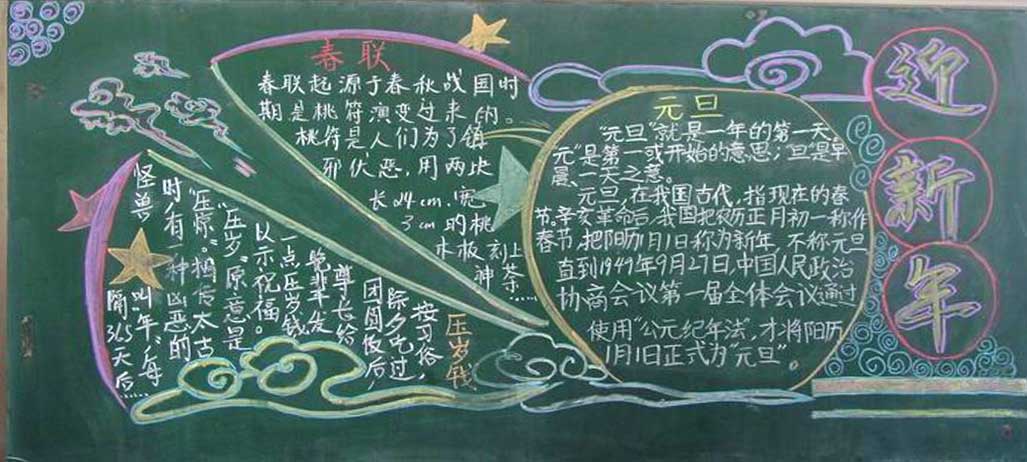 迎新年
春联
春联起源于春秋战国时
期是桃符演变过来的。
桃符是人们为了镇
邪伏恶,用两块
长24cm,宽
3cm的桃
木板刻上
神荼……
元旦
“元旦”就是一年的第一天,
元”是第一或开始的意思;旦”是早
晨、一天之意。
元旦,在我国古代,指现在的春
节。辛亥革命后,我国把农历正月初一称作
春节,把阳历1月1日称为新年,不称元旦
直到1949年9月27日,中国人民政治
协商会议第一届全体会议通过
使用“公元纪年法”,才将阳历
1月1日正式为“元旦”。
压岁钱
按习俗,
除夕吃过
团圆饭后,
尊长给
晚辈发
一点压岁钱
以示祝福。
“压岁”原意是
“压惊”。相传太古
时,有一种凶恶的
怪兽叫“年”,每
隔365天后……